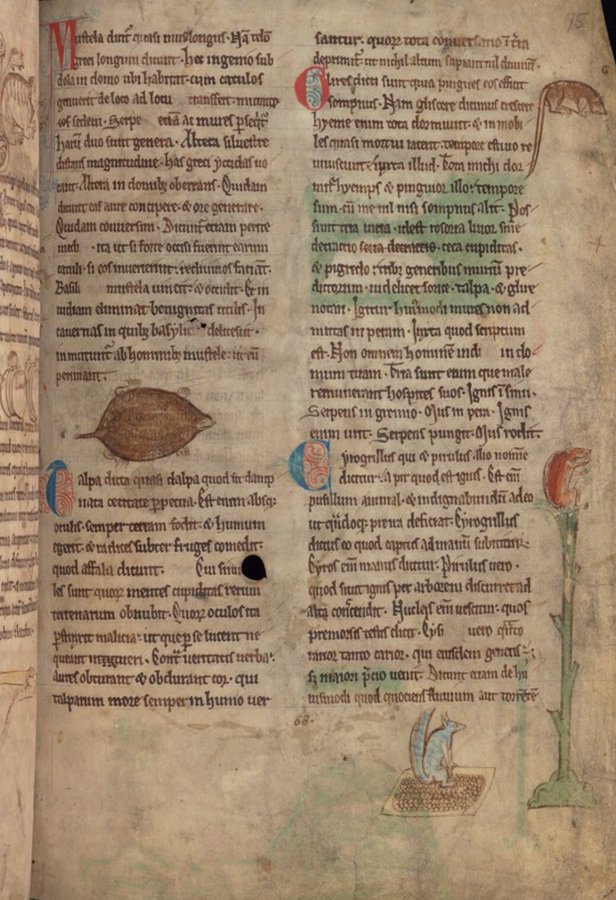 Mustela dicta quasi mus longus. Nam telon
greci longum dicunt. Hec ingenio sub
dola in domo ubi habitat. cum catulos
genuerit de loco ad locum transfert. mutataque
eos sedem. Serpe etiam at mures persequitur
harum duo sunt genera. Altera silvestre
distans magnitudine. has greci yctidas vo
cant. Altera in domibus oberrans. Quidam
dicunt eas aure concipere. & ore generare.
Quidam conversim. Dicuntur etiam perite
medi ita ut si forte occisi fuerint earum
catuli. si eos invenerint. redivivos faciant.
Basili mustela vincit & occidit. Et in
eliminat benignitas utilis. In
cavernas in quibus basylic delitescit.
inmittuntur ab hominibus mustele. ut eum
perimant.
Talpa dicta quasi dalpa quod sit damp
nata cecitate perpetua. Est enim absque
oculis. semper terram fodit. & humum
egerit. & radices subter fruges comedit.
quod affala dicunt. Cui simi
les sunt quorum mentes cupiditas rerum
terrenarum obnubit. Quorum oculos ita
perstrinxit malicia. ut que per se lucent ne
queant intueri. Contra veritatis verba.
aures obturant & obdurant cor. qui
talparum more semper in humo ver
santur. quorum tota conversatio in terra
deprimitur. ut nichil altum sapiant nil divinum.
Glires dicti sunt quia pingues eos efficit
sompnus. Nam gliscere dicimus crescere
hyeme enim tota dormiunt. & in mobi
les quasi mortui iacent. tempore estivo re
viviscunt. iuxta illud. Tota michi dor
mitur hyemps & pinguior illo tempore
sum. cum me nil nisi sompnus alit. Pos
sunt tria vicia. idest rosoria livor sive
detractio seria detractis. ceca cupiditas.
& pigredo. tribus generibus murium pre
dictorum. videlicet sorice. talpa. & glire
notari. Igitur huiusmodi mures non ad
mittas in peram. Iuxta quod scriptum
est. Non omnem hominem ind in do.
mum tuam. Tria sunt enim que male
remunerant hospites suos. Ignis in sinu.
Serpens in gremio. Mus in pera. Ignis
enim urit. Serpens pungit. Mus rodit.
Cyrogrillus qui & pirulus alio nomine
dicitur. a pir quod est ignis. Est enim
pusillum animal. & indignabundum adeo
ut quandoque pre ira deficiat. Cyrogrillus
dictus eo quod captus ad manum subicitur.
Cyros enim manus dicitur. Pirulus vero.
quod sicut ignis per arborem discurret ad
alta contendit. Nucleos enim vescitur. quos
premorsis testis elicit. Cys vero quanto
rarior tanto carior. qui eiusdem generis
sed maiori precio venit. Dicunt etiam de hu
iusmodi quod quociens fluvium aut torrentem
68.
75